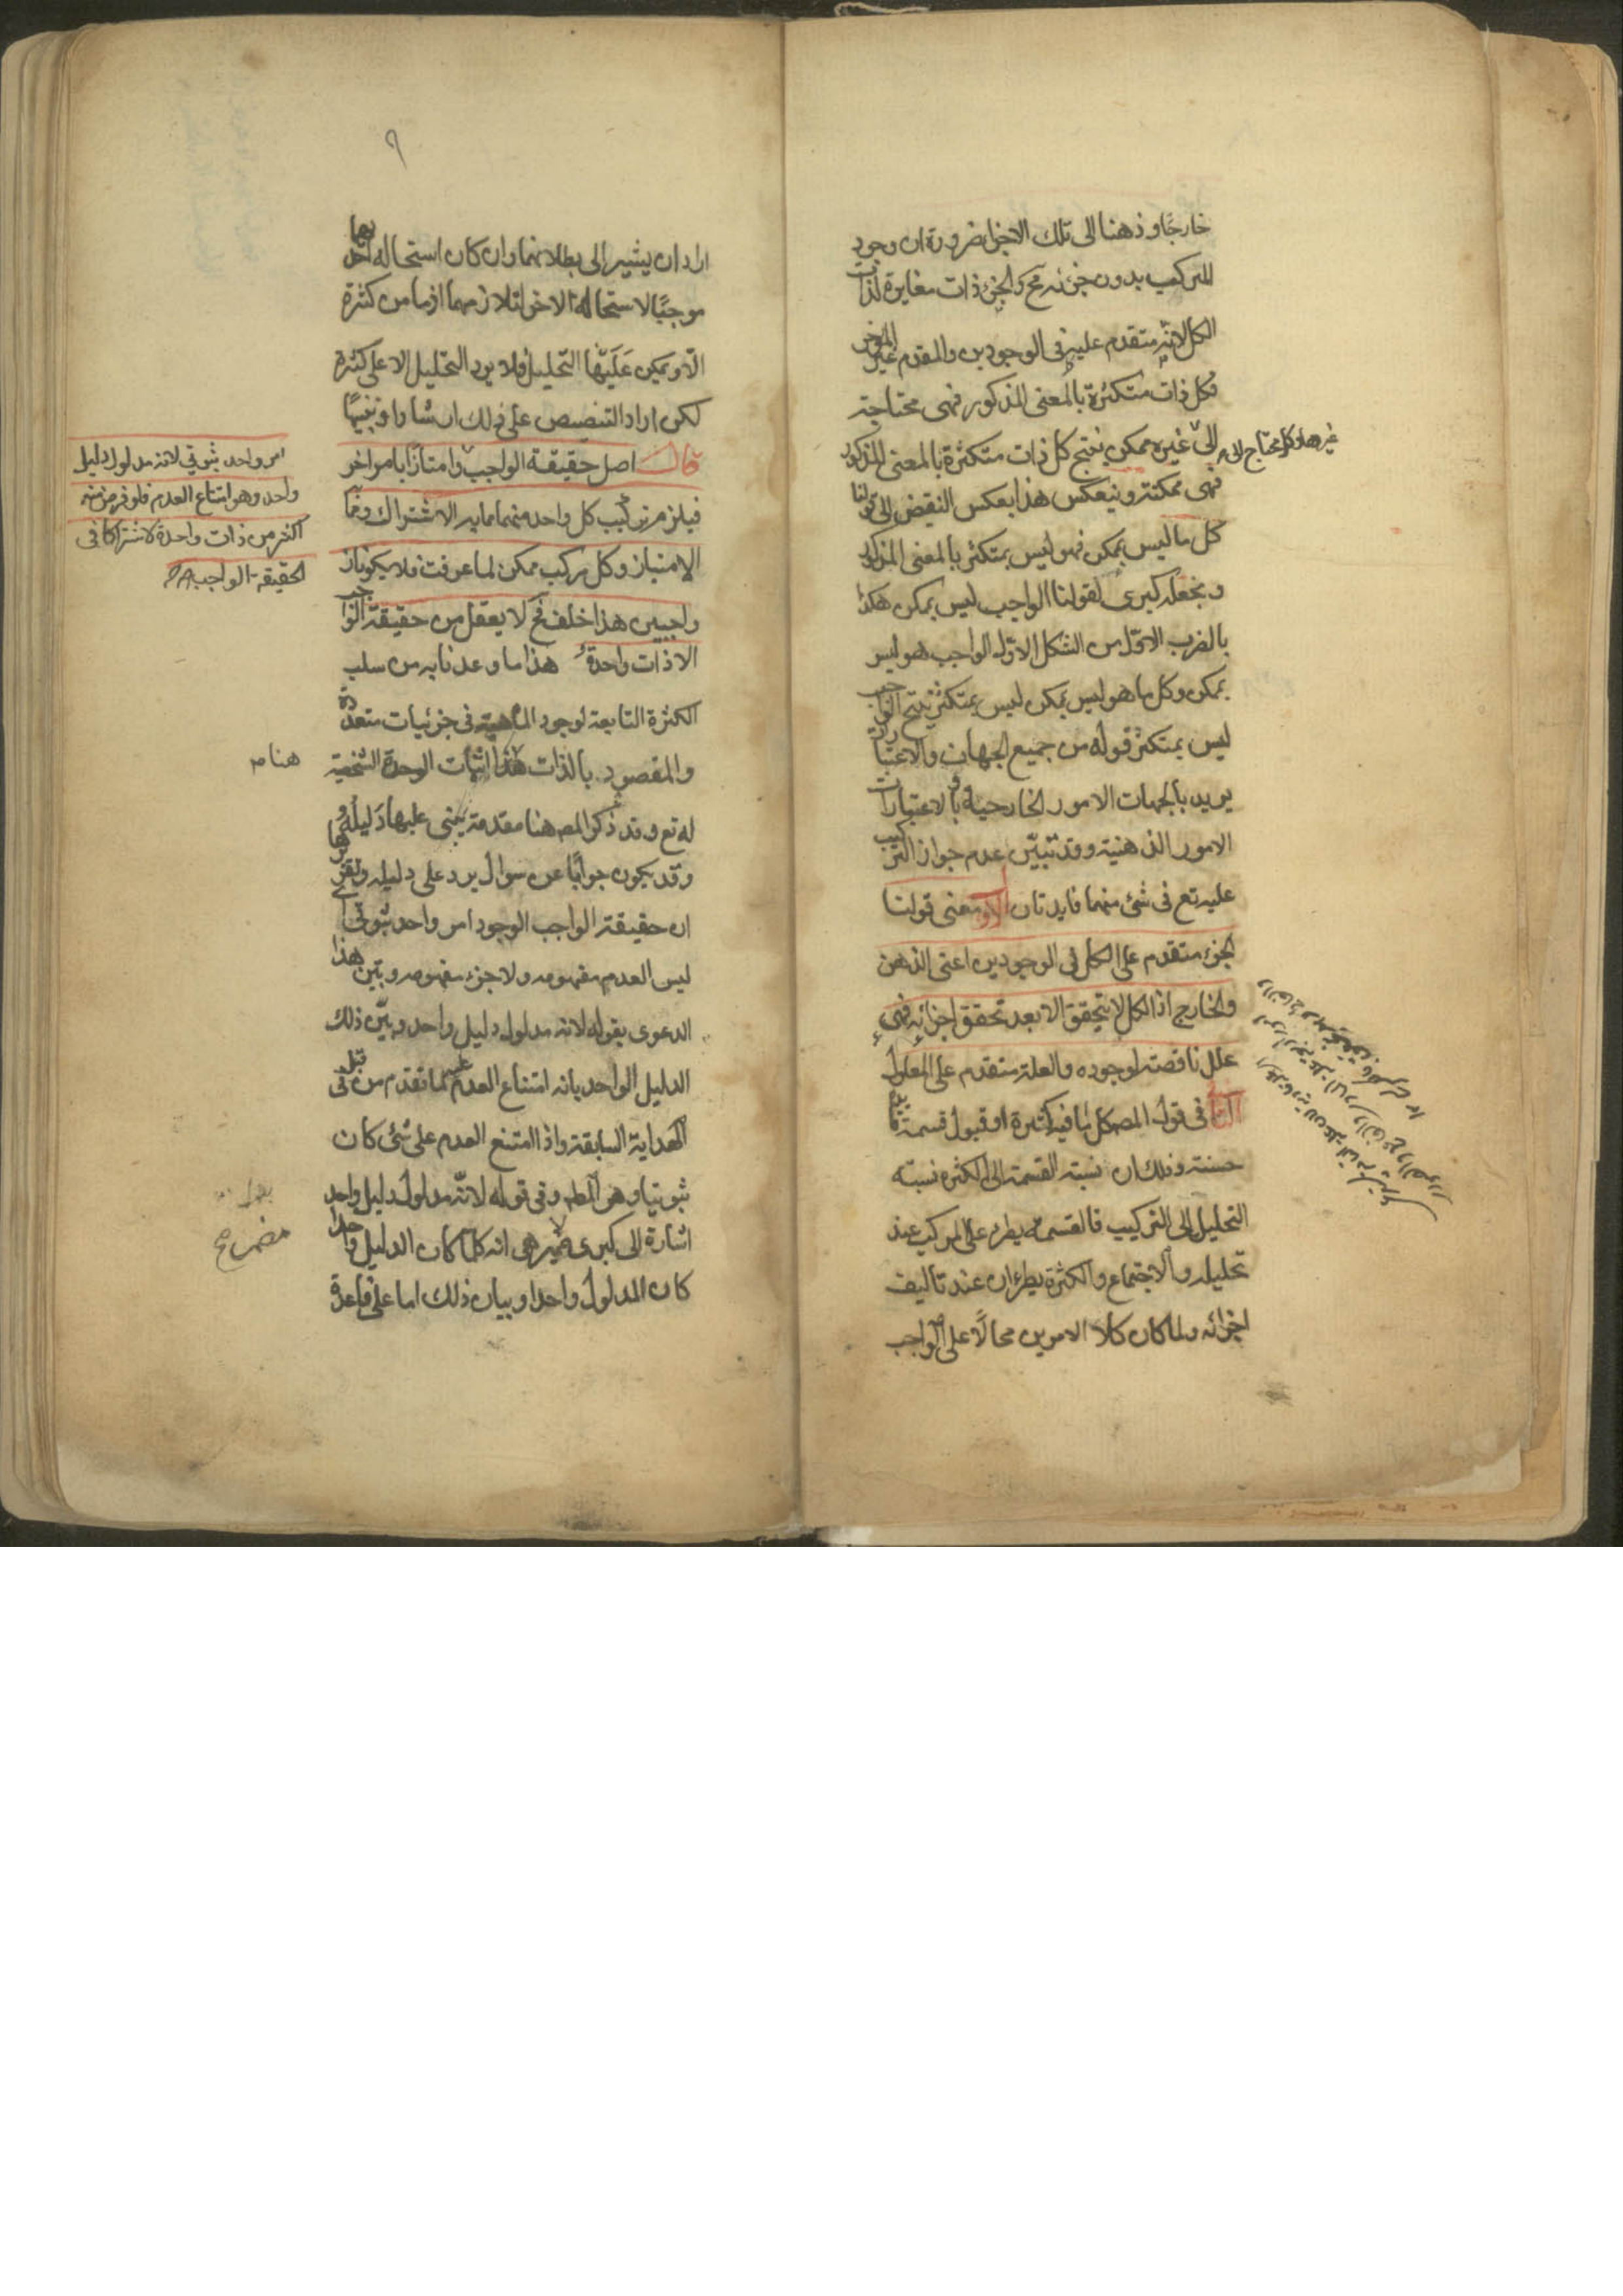 خارجًا وذهنا الى تلك الاجزا ضرورة ان وجود
المركب بدون جزئه مح والجزء ذات مغايرة لذات
الكل لانه متقدم عليه فى الوجودين والمقدم غير المؤخر
فكل ذات متكثرة بالمعنى المذكور فهى محتاجة
الى غيره ممكن ينتج كل ذات متكثرة بالمعنى المذكور
غيرها وكل محتاج الى
فهى ممكنة وينعكس هذا بعكس النقيض الى قولنا
كل ما ليس بممكن فهو ليس بمتكثر بالمعنى المذكور
ونجعله كبرى لقولنا الواجب ليس بممكن هكذا
بالضرب الاول من الشكل الاول الواجب هو ليس
بممكن وكل ما هو ليس بممكن ليس بمتكثر ينتج الواجب
ليس بمتكثر قوله من جميع الجهات والاعتبارات
يريد بالجهات الامور الخارجية وبالاعتبارات
الامور الذهنية وقد تبيّن عدم جواز التركيب
عليه تع فى شئ منهما فايدتان الاولى معنى قولنا
الجزء متقدم على الكل فى الوجودين اعنى الذهن
والخارج اذ الكل لا يتحقق الا بعد تحقق اجزائه فهى
علل ناقصة لوجوده والعلة متقدم على المعلول
الثانية فى قول المص كل ما فيه كثرة او قبول قسمة فايدة
حسنة وذلك ان نسبة القسمة الى الكثرة نسبة
التحليل الى التركيب فالقسمة يطرء على المركب عند
تحليله والاجتماع والكثرة يطرءان عند تاليف
اجزائه ولما كان كلا الامرين محالًا على الواجب
٩
اراد ان يشير الى بطلانهما وان كان استحاله احدهما
موجبًا لاستحالة الاخر لتلازمهما اذ ما من كثرة
الّا ويمكن عليها التحليل فلا يرد التحليل الا على كثرة
لكن اراد التنصيص على ذلك ارشادا وتنبيهًا
قال اصل حقيقة الواجب وامتازا بامر اخر
امر واحد ثبوتي لانه مدلول دليل
واحد وهو امتناع العدم فلو فرض منه
اكثر من ذات واحدة لاشتراكا فى
الحقيقة الواجب
فيلزم تركيب كل واحد منهما مما به الاشتراك ومما به
الامتياز وكل مركب ممكن لما عرفت فلا يكونان
واجبين هذا خلف فح لا يعقل من حقيقة الواجب
الا ذات واحدة هذا ما وعدنا به من سلب
الكثرة التابعة لوجود الماهية فى جزئيات متعددة
والمقصود بالذات هنا اثبات الوحدة الشخصية
هنا
له تع وقد ذكر المص هنا مقدمة يبنى عليها دليله
وقد يكون جوابًا عن سوال يرد على دليله وتقريرها
ان حقيقة الواجب الوجود امر واحد ثبوتى اى
ليس العدم مفهومه ولا جزء مفهومه وبيّن هذا
الدعوى بقوله لانه مدلول دليل واحد وبيّن ذلك
الدليل الواحد بانه امتناع العدم عليه لما تقدم من قبل فى
الهداية السابقة واذا امتنع العدم على شئ كان
ثبوتيا وهو المط وفى قوله لانّه مدلول دليل واحد
اشارة الى كبرى مضمرة هى انه كلما كان الدليل واحدا
مضمر صح
كان المدلول واحدا وبيان ذلك اما على قاعدة